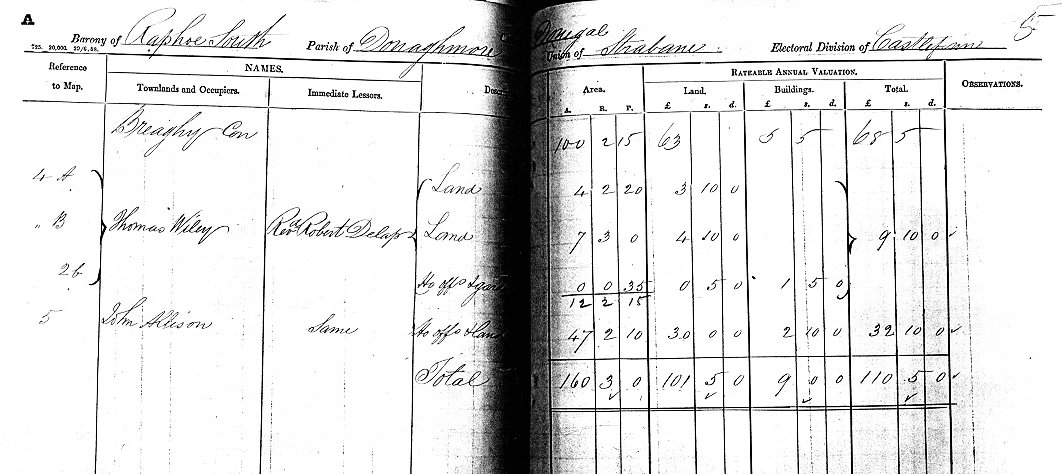 A
5
Barony of Raphoe South Parish of Donaghmore Donegal Union of Strabane. Electoral Division of Castlefinn
725. 20,000. 29/6.58.
Reference to Map. NAMES. Area. RATEABLE ANNUAL VALUATION. OBSERVATIONS.
Townlands and Occupiers. Immediate Lessors. Descri Land. Buildings. Total.
A. R. P. £ s. d. £ s. d. £ s. d.
Breaghy Con 100 2 15 63 5 5 68 5
4 A Land 4 2 20 3 10 0
„ B Thomas Wiley Revd Robert Delap Land 7 3 0 4 10 0 9 10 0
2 b Ho offs & gard 0 0 35 0 5 0 1 5 0
12 2 15
5 John Allison Same Ho offs & land 47 2 10 30 0 0 2 10 0 32 10 0
Total 160 3 0 101 5 0 9 0 0 110 5 0